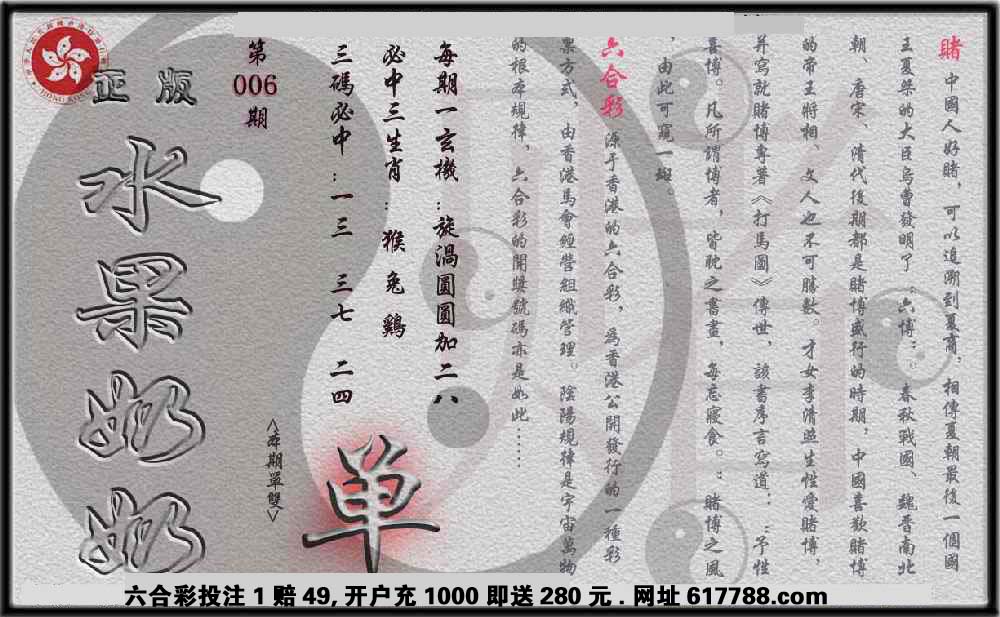 賭 中國人好賭，可以追溯到夏商，相傳夏朝最後一個國
王夏桀的大臣烏曹發明了“六博”，春秋戰國、魏晋南北
朝、唐宋、清代後期都是賭博盛行的時期，中國喜歡賭博
的帝王將相、文人也不可勝數，才女李清照生性愛賭博，
并寫就賭博專著《打馬圖》傳世，該書序言寫道：“予性
喜博。凡所謂博者，皆耽之晝，每忘寢食。”賭博之風
，由此可窺一斑。
六合彩 源于香港的六合彩，爲香港公開發行的一種彩
票方式，由香港馬會經營組織管理。陰陽規律是宇宙萬物
的根本規律，六合彩的開獎號碼亦是如此……
每期一玄機：旋渦圓圓加二八
必中三生肖：猴 兔 鷄
三碼必中：一三 三七 二四
第
006
期
<本期單雙>
单
正版
水果奶奶
六合彩投注 1 赔 49, 开户充 1000 即送 280 元 . 网址 617788.com